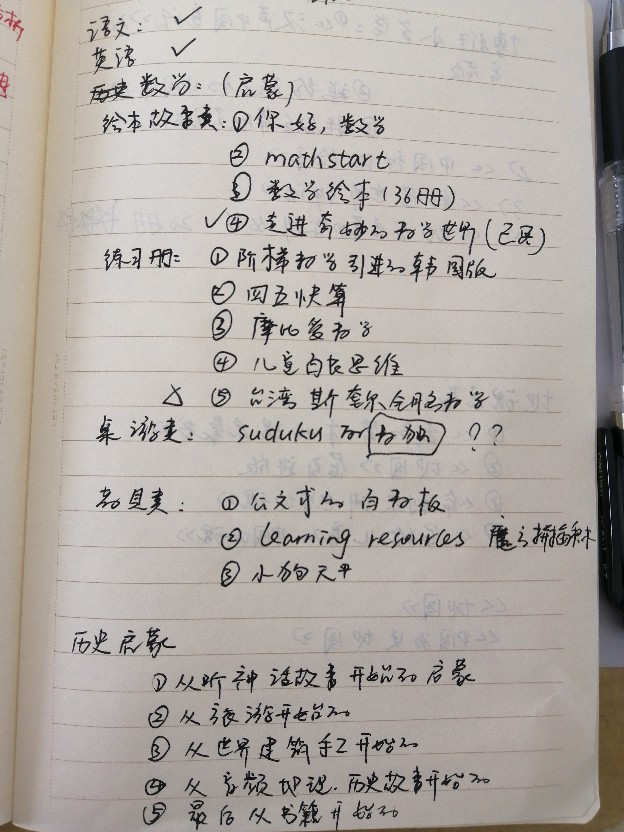 语文: ✓
英语 ✓
数学: (启蒙)
绘本故事类: ① 你好, 数学
② mathstart
③ 数学绘本 (36册)
✓④ 走进奇妙的数学世界 (已买)
练习册: ① 阶梯数学引进的韩国版
② 四五快算
③ 摩比爱数学
④ 儿童自我思维
△ ⑤ 台湾斯奎尔全脑数学
桌游类: suduku 的 数独 ??
教具类: ① 公文式的百数板
② learning resources 积木
③ 小狗天平
历史启蒙
① 从听神话故事开始的启蒙
② 从旅游开始的
③ 从世界建筑手工开始的
④ 从音频地理、历史故事开始的
⑤ 最后从书籍开始的